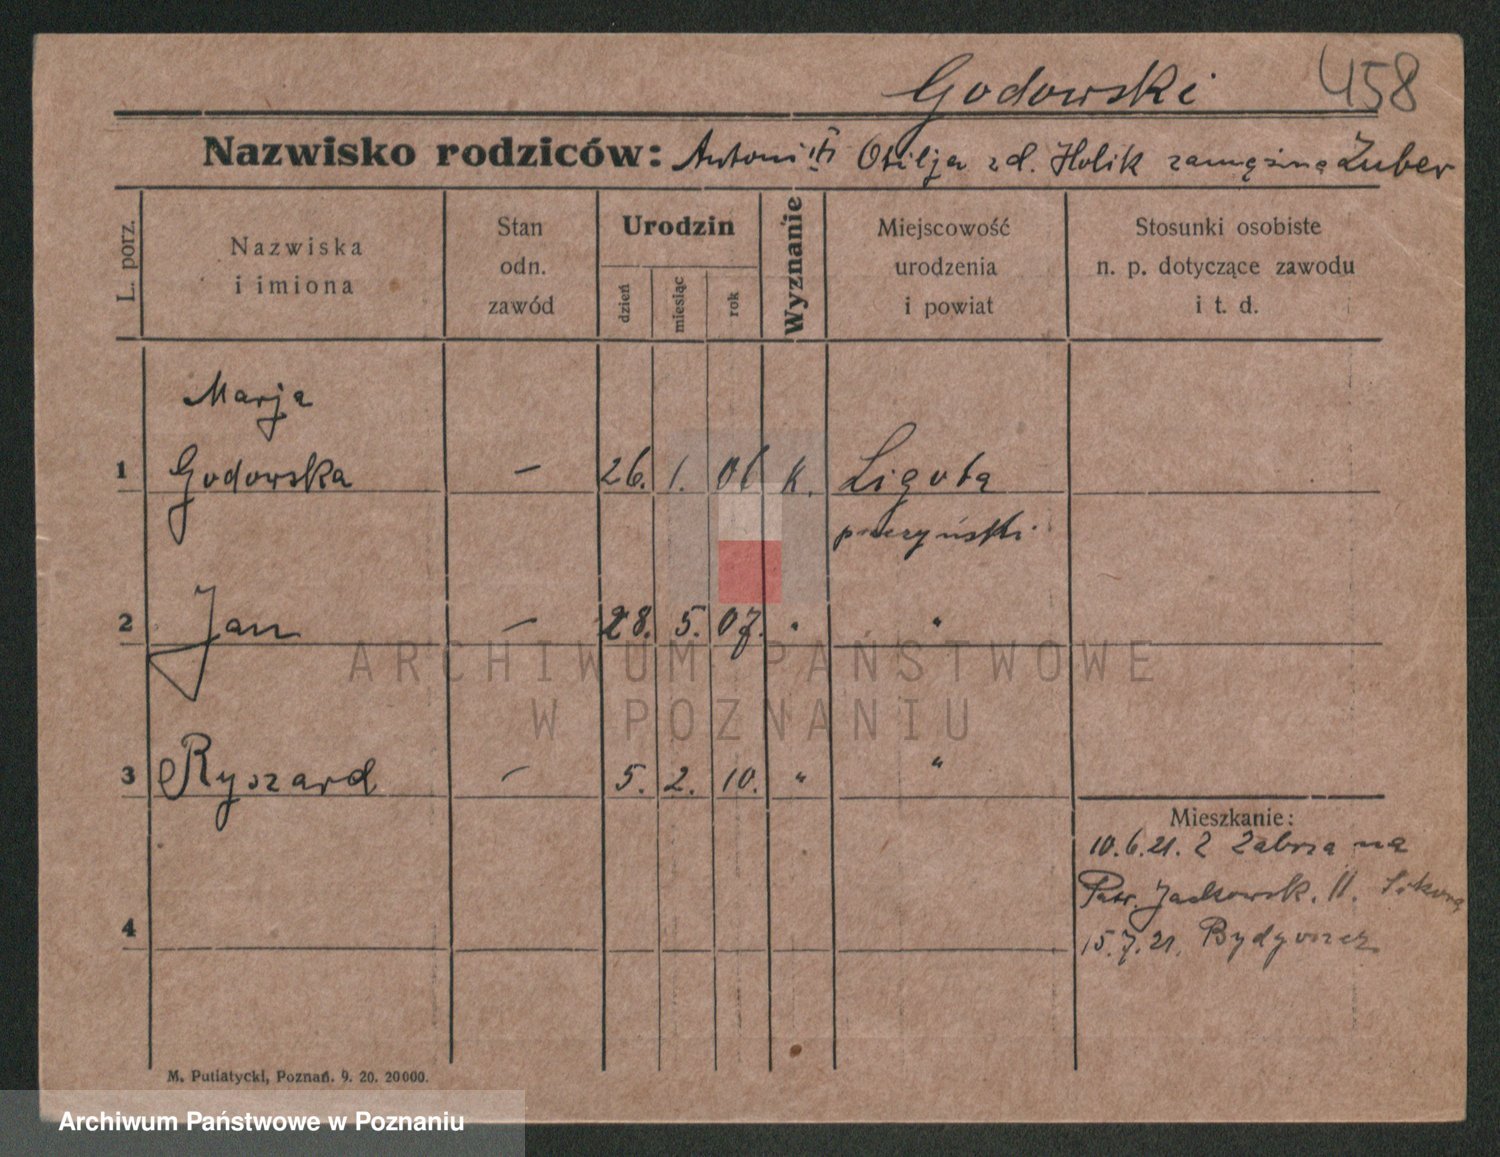 Godowski 458
Nazwisko rodziców: Antoni i Otilja zd. Holik zamężna Zuber
L. porz.
Nazwiska
i imiona
Stan
odn.
zawód
Urodzin
dzień
miesiąc
rok
Wyznanie
Miejscowość
urodzenia
i powiat
Stosunki osobiste
n. p. dotyczące zawodu
i t. d.
Marja
1 Godowska — 26. 1. 06 k. Ligota
pszczyński
2 Jan — 28. 5. 07. " "
ARCHIWUM PAŃSTWOWE
W POZNANIU
3 Ryszard — 5. 2. 10. " "
Mieszkanie:
10.6.21. Z Zabrza na
Patr. Jackowsk. 11.
4
15.7.21. Bydgoszcz
M. Putiatycki, Poznań. 9. 20. 20000.
Archiwum Państwowe w Poznaniu